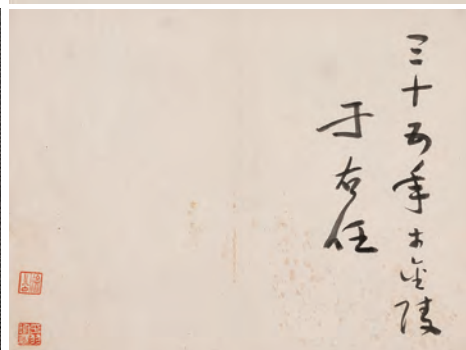 三十五年于金陵
于右任